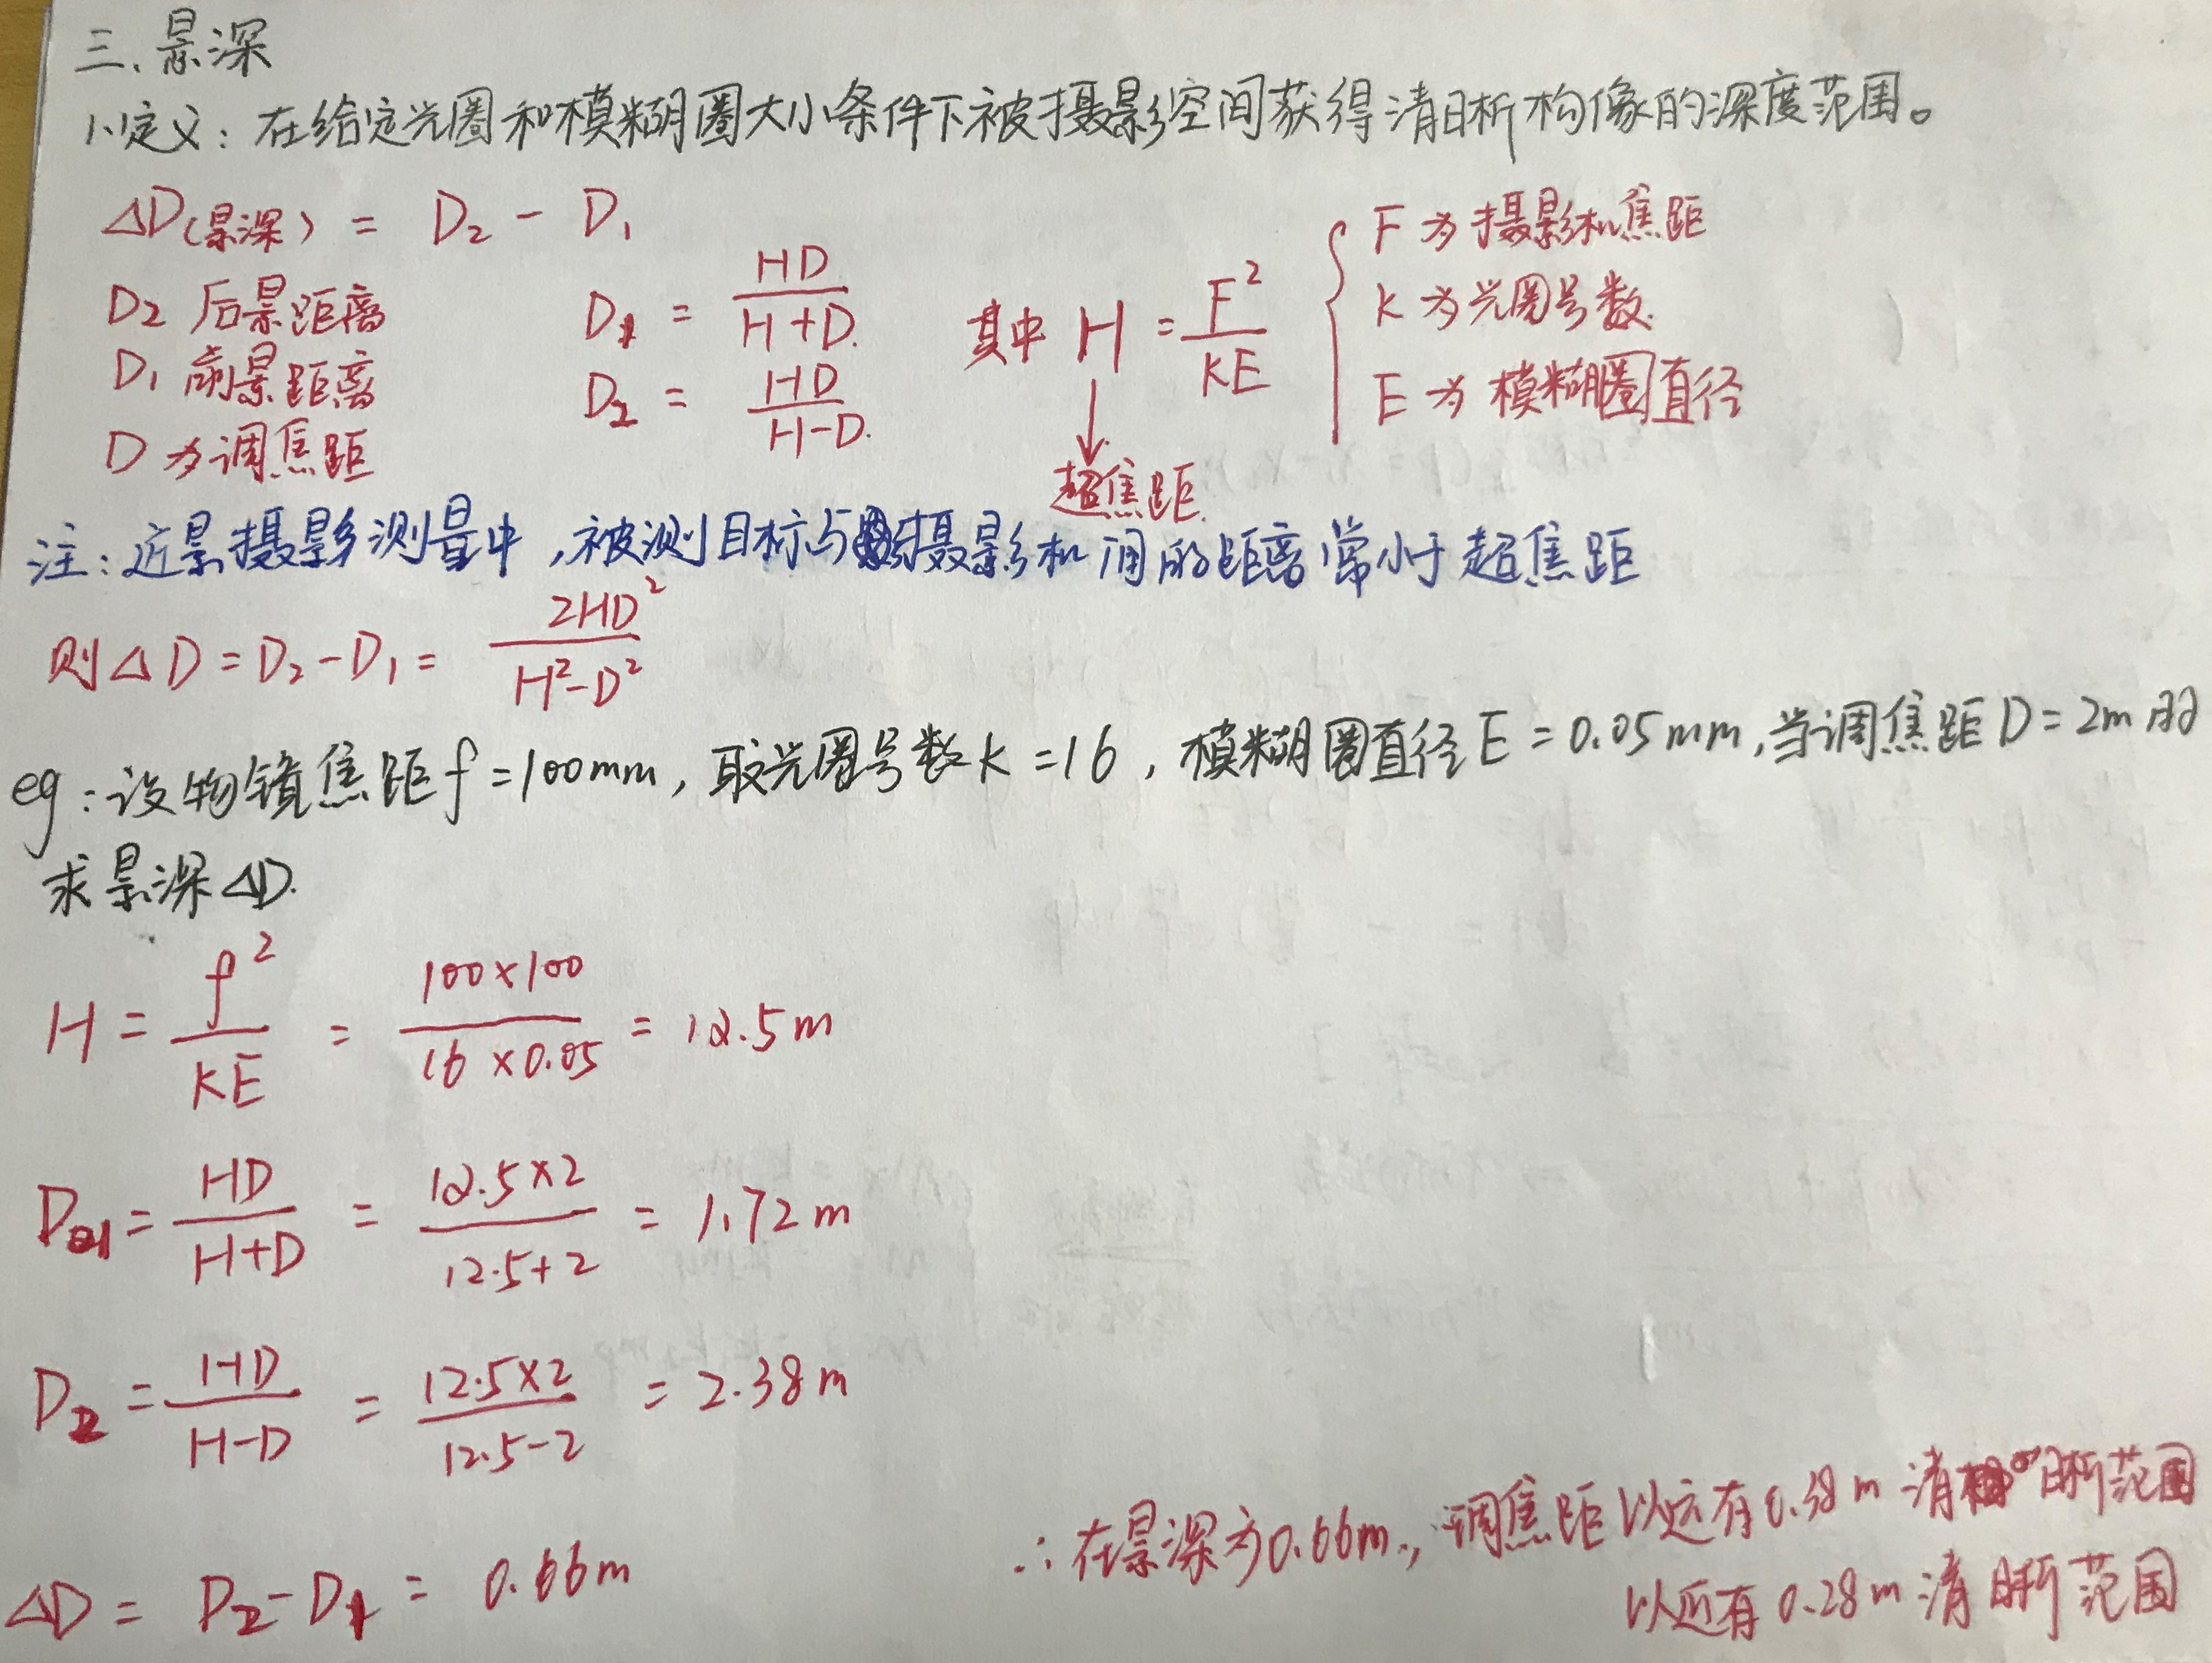 三、景深
1、定义：在给定光圈和模糊圈大小条件下被摄影空间获得清晰构像的深度范围。
ΔD(景深) = D₂ - D₁
D2 后景距离
D₁ 前景距离
D 为调焦距
D₁ = HD/(H+D)
D₂ = HD/(H-D)
其中 H = F²/KE
超焦距
F 为摄影机焦距
K 为光圈号数
E 为模糊圈直径
注：近景摄影测量中，被测目标与摄影机间的距离常小于超焦距
则 ΔD = D₂-D₁ = 2HD²/(H²-D²)
eg：设物镜焦距 f=100mm，取光圈号数K=16，模糊圈直径E=0.05mm，当调焦距D=2m时
求景深ΔD.
H = f²/KE = (100×100)/(16×0.05) = 12.5m
D₁ = HD/(H+D) = (12.5×2)/(12.5+2) = 1.72m
D₂ = HD/(H-D) = (12.5×2)/(12.5-2) = 2.38m
ΔD = D₂-D₁ = 0.66m
∴在景深为0.66m，调焦距以远有0.38m清晰范围
以近有0.28m清晰范围